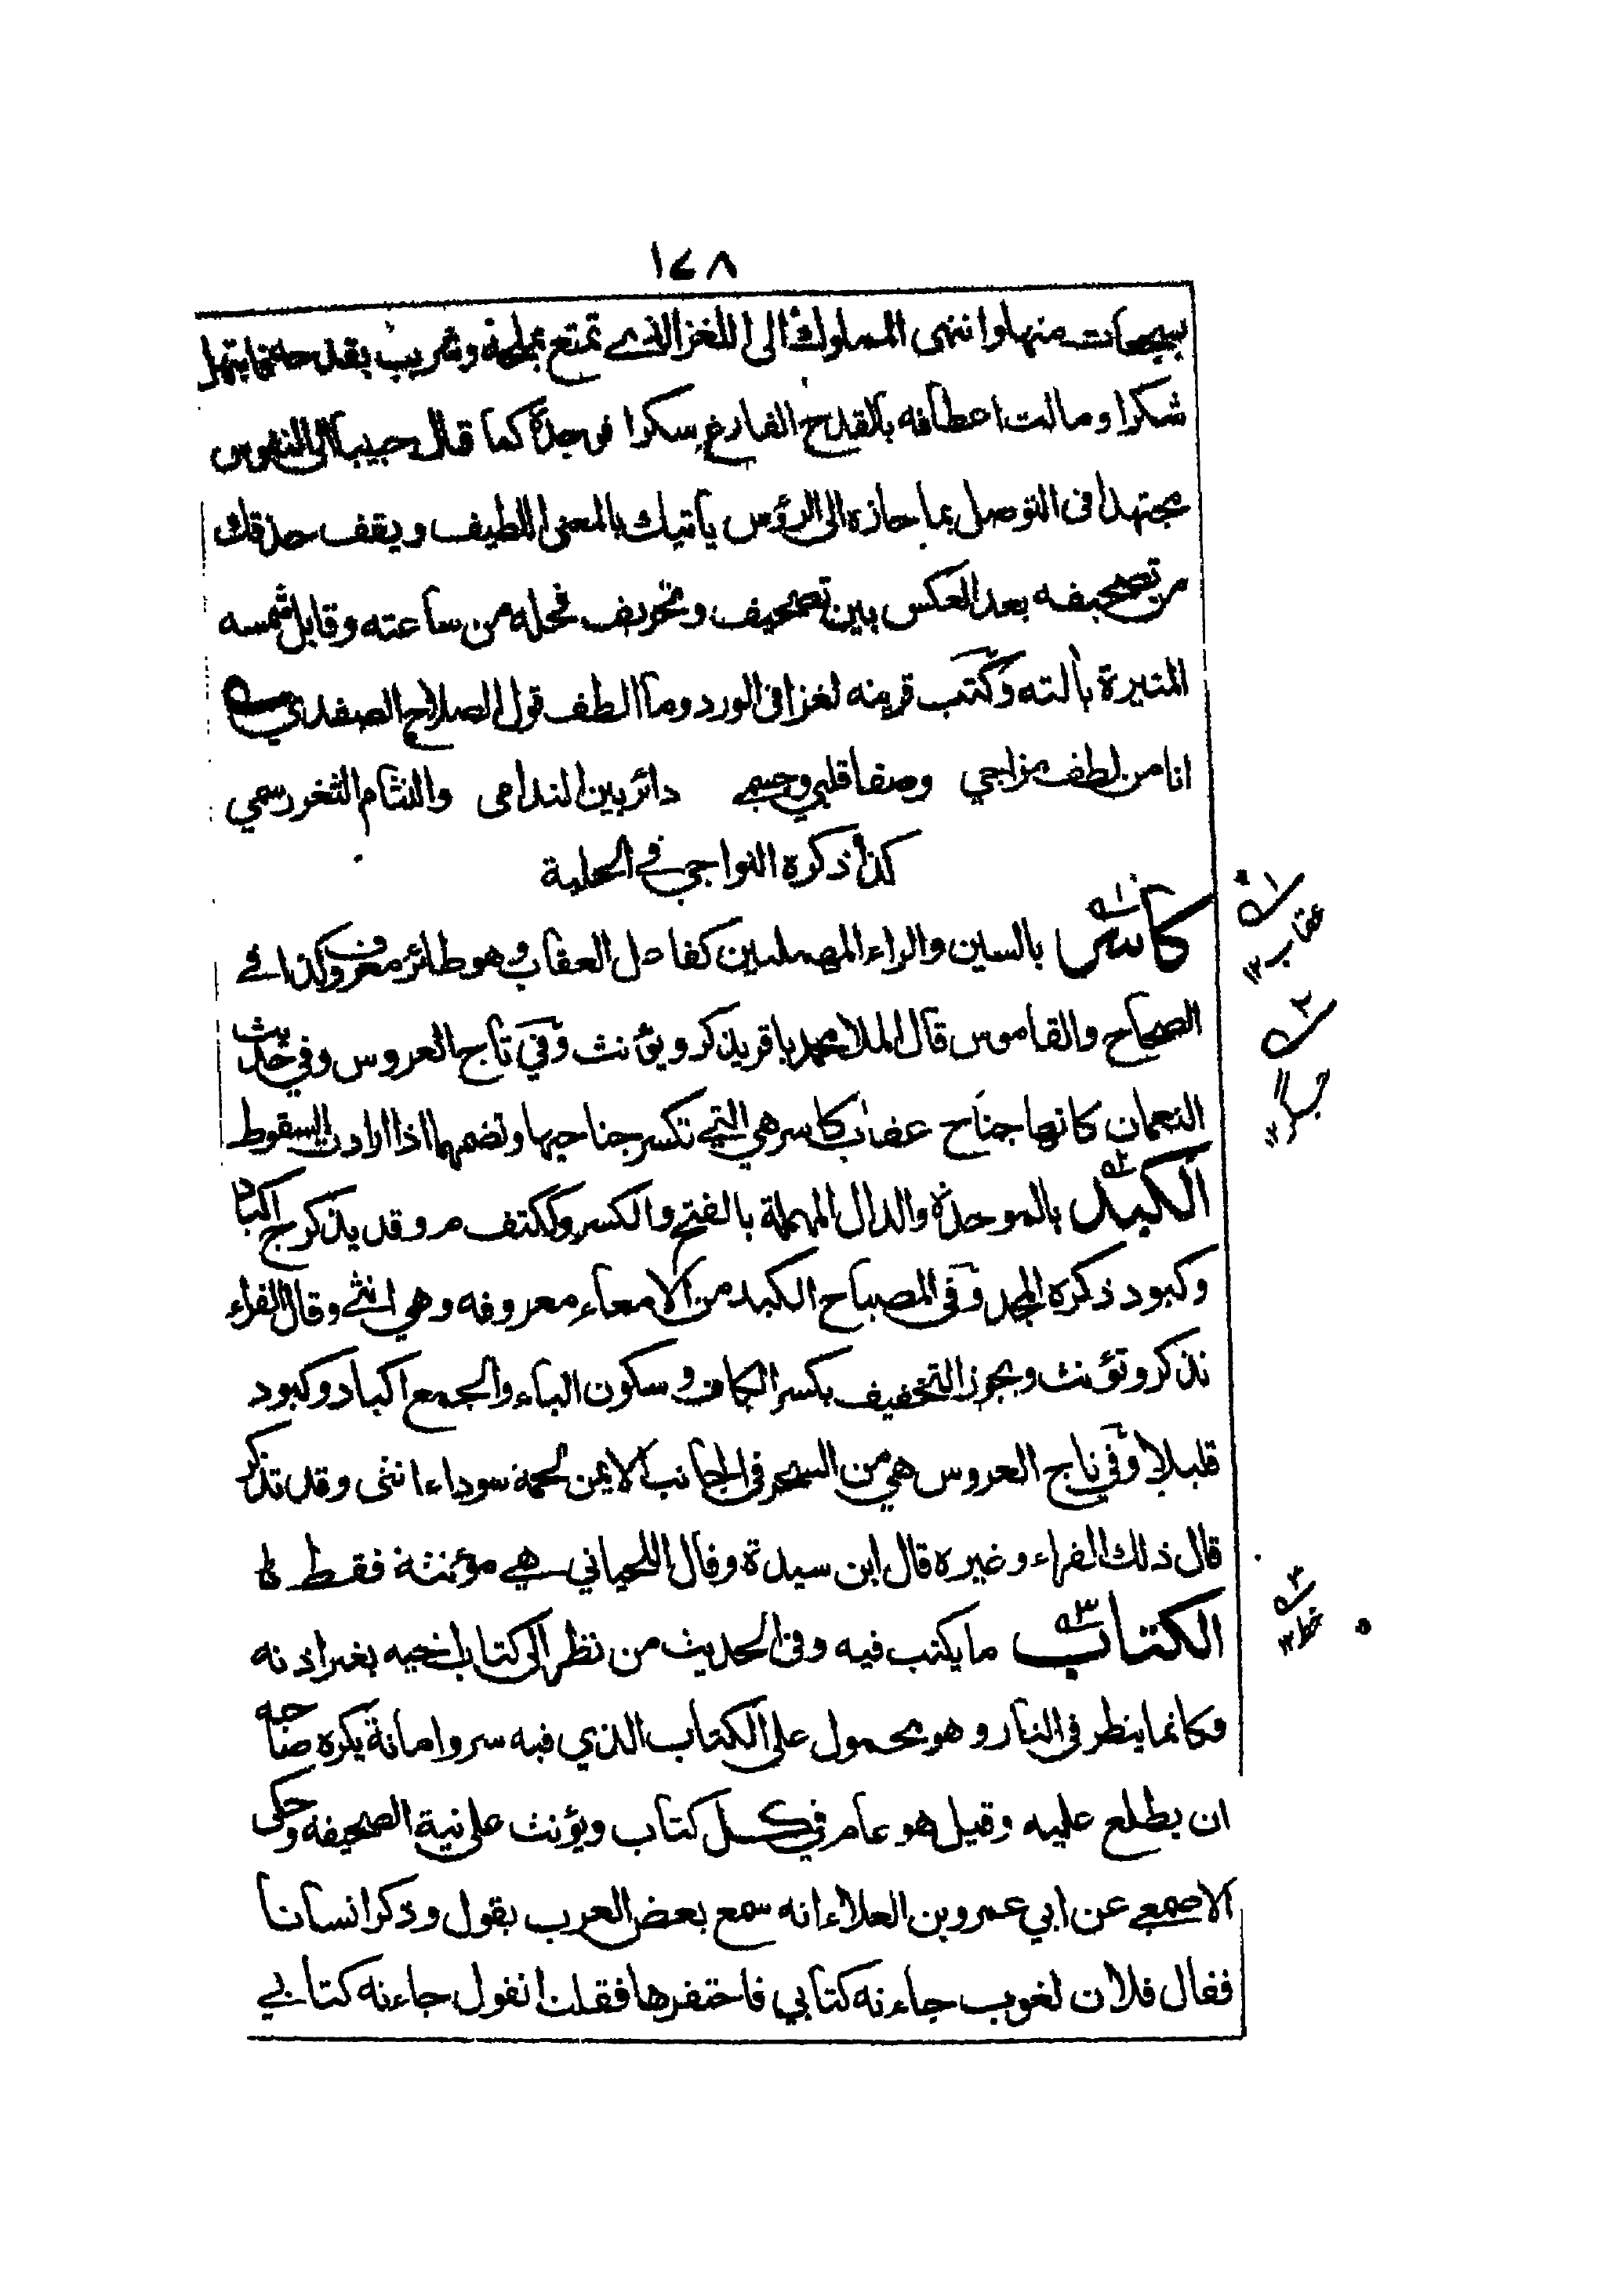 ١٤٨
منها وانتهى المملوك الى اللغز الذى تمتع وشرب بقدحه
شكرا ومالت اعطافه بالقدح الفارغ سكرا كما قال حبيبا الى النفوس
مجتهدا فى التوصل بما حازه الى الرؤس ياتيك بالمعنى اللطيف ويقف حذقك
من تصحيفه بعد العكس بين تصحيف وتحريف فحله من ساعته وقابل شمسه
المنيرة بالته وكتب قرينه لغزا فى الورد وما الطف قول الصلاح الصفدي
انا من لطف مزاجي وصفا قلبي وجسمي دائر بين الندامى والنثام الثغر رسمي
كذا ذكره النواجي في الحلبة
كاسر بالسين والراء المهملتين كفاعل العقاب وهو طائر معروف كذا في
الصحاح والقاموس قال الملا محمد باقر يذكر ويؤنث وفي تاج العروس وفي حديث
النعمان كانها جناح عقاب كاسر هي التي تكسر جناحيها وتضمهما اذا ارادت السقوط
الكبد بالموحدة والدال المهملة بالفتح والكسر وككتف م وقد يذكر ج اكباد
وكبود ذكره المجد وفى المصباح الكبد من الامعاء معروفه وهي انثى وقال الفراء
تذكر وتؤنث ويجوز التخفيف بكسر الكاف وسكون الباء والجمع اكباد وكبود
قليلا وفي تاج العروس هي من السحر فى الجانب الايمن لحمة سوداء انثى وقد تذكر
قال ذلك الفراء وغيره قال ابن سيدة وقال اللحياني هي مؤنثة فقط
الكتاب ما يكتب فيه وفى الحديث من نظر الى كتاب اخيه بغير اذنه
فكانما ينظر فى النار وهو محمول على الكتاب الذي فيه سر وامانة يكره صاحبه
ان يطلع عليه وقيل هو عام في كل كتاب ويؤنث على نية الصحيفه وحكى
الاصمعي عن ابي عمرو بن العلاء انه سمع بعض العرب يقول وذكر انسانا
فقال فلان لغوب جاءته كتابي فاحتقرها فقلت اتقول جاءته كتابي
عقاب ١٢
جگر ١٢
خط ١٢